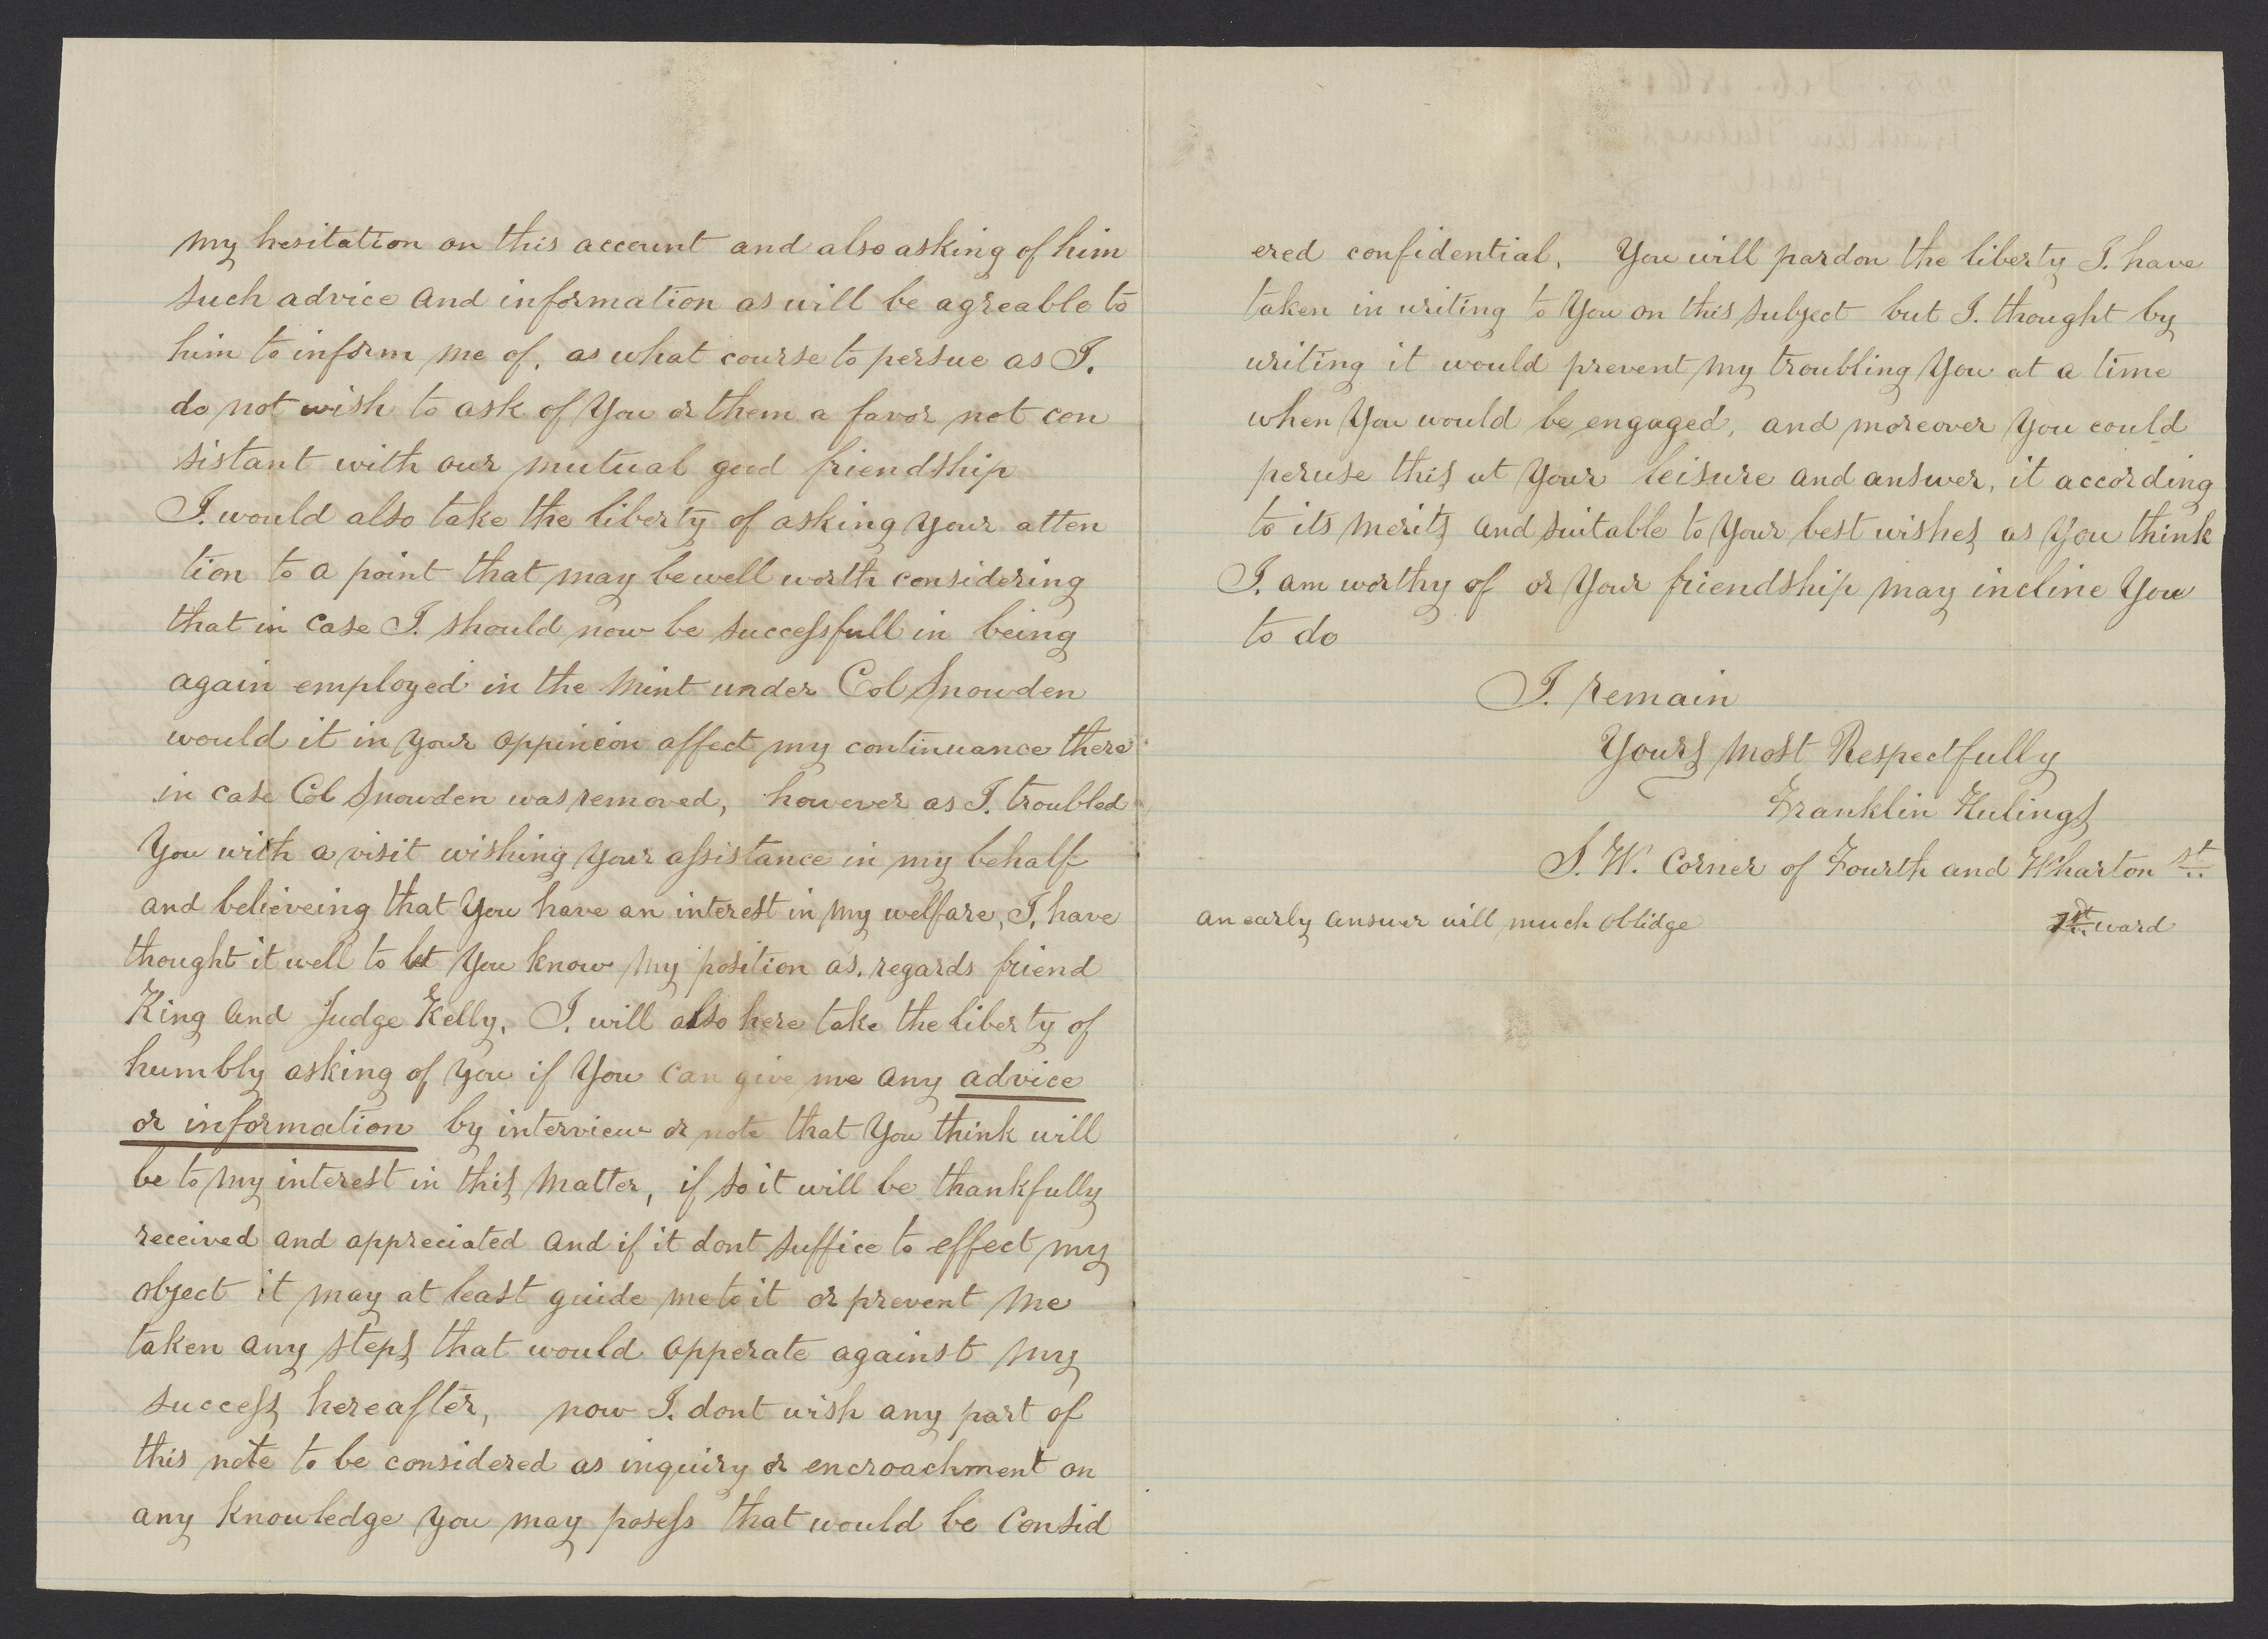 my hesitation on this account and also asking of him
such advice and information as will be agreable to
him to inform me of. as what course to persue as I.
do not wish to ask of you or them a favor not con
sistant with our mutual good friendship
I. would also take the liberty of asking your atten
tion to a point that may be well worth considering
that in case I. should now be successfull in being
again employed in the Mint under Col Snowden
would it in your oppinion affect my continuance there
in case Col Snowden was removed, however as I. troubled
You with a visit wishing your assistance in my behalf
and believeing that you have an interest in my welfare, I. have
thought it well to let you know my position as. regards friend
King and Judge Kelly. I. will also here take the liberty of
humbly asking of you if you can give me any advice
or information by interview or note that you think will
be to my interest in this matter, if so it will be thankfully
received and appreciated and if it dont suffice to effect my
object it may at least guide me to it or prevent me
taken any steps that would opperate against my
success hereafter, now I. dont wish any part of
this note to be considered as inquiry or encroachment on
any knowledge you may posess that would be consid
ered confidential. You will pardon the liberty I. have
taken in writing to you on this subject but I. thought by
writing it would prevent my troubling you at a time
when you would be engaged, and moreover you could
peruse this at your leisure and answer, it according
to its merits and suitable to your best wishes as you think
I. am worthy of or your friendship may incline you
to do
I. remain
Yours most Respectfully
Franklin Hulings
S. W. Corner of Fourth and Wharton st
an early answer will much oblidge 1st ward